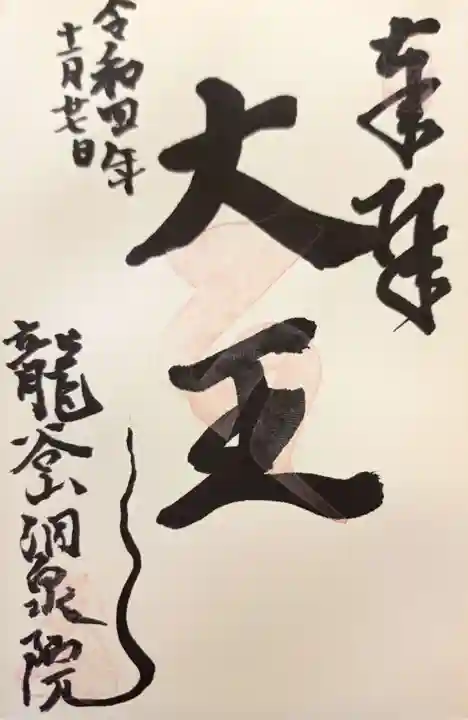 奉拝
大王
令和四年
十二月廿七日
龍谷山洞泉院